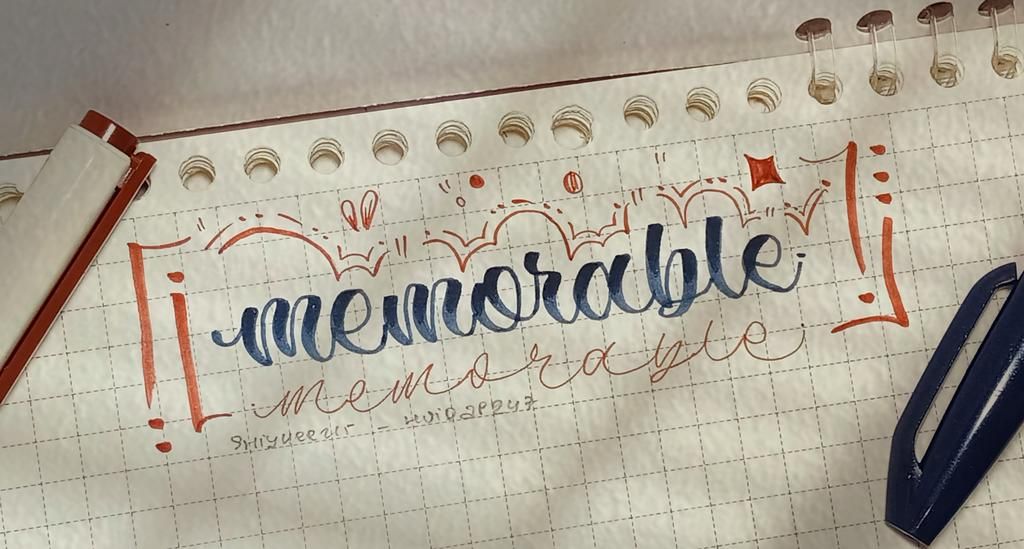 memorable
memorable